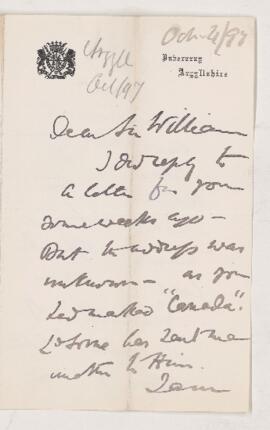 Argyll
Oct/97
Oct. 4/97
Inverary
Argyllshire
Dear Sir William
I did reply to
a letter from you
some weeks ago -
But the address was
unknown - as you
had marked "Canada".
has sent
to Him.
I am